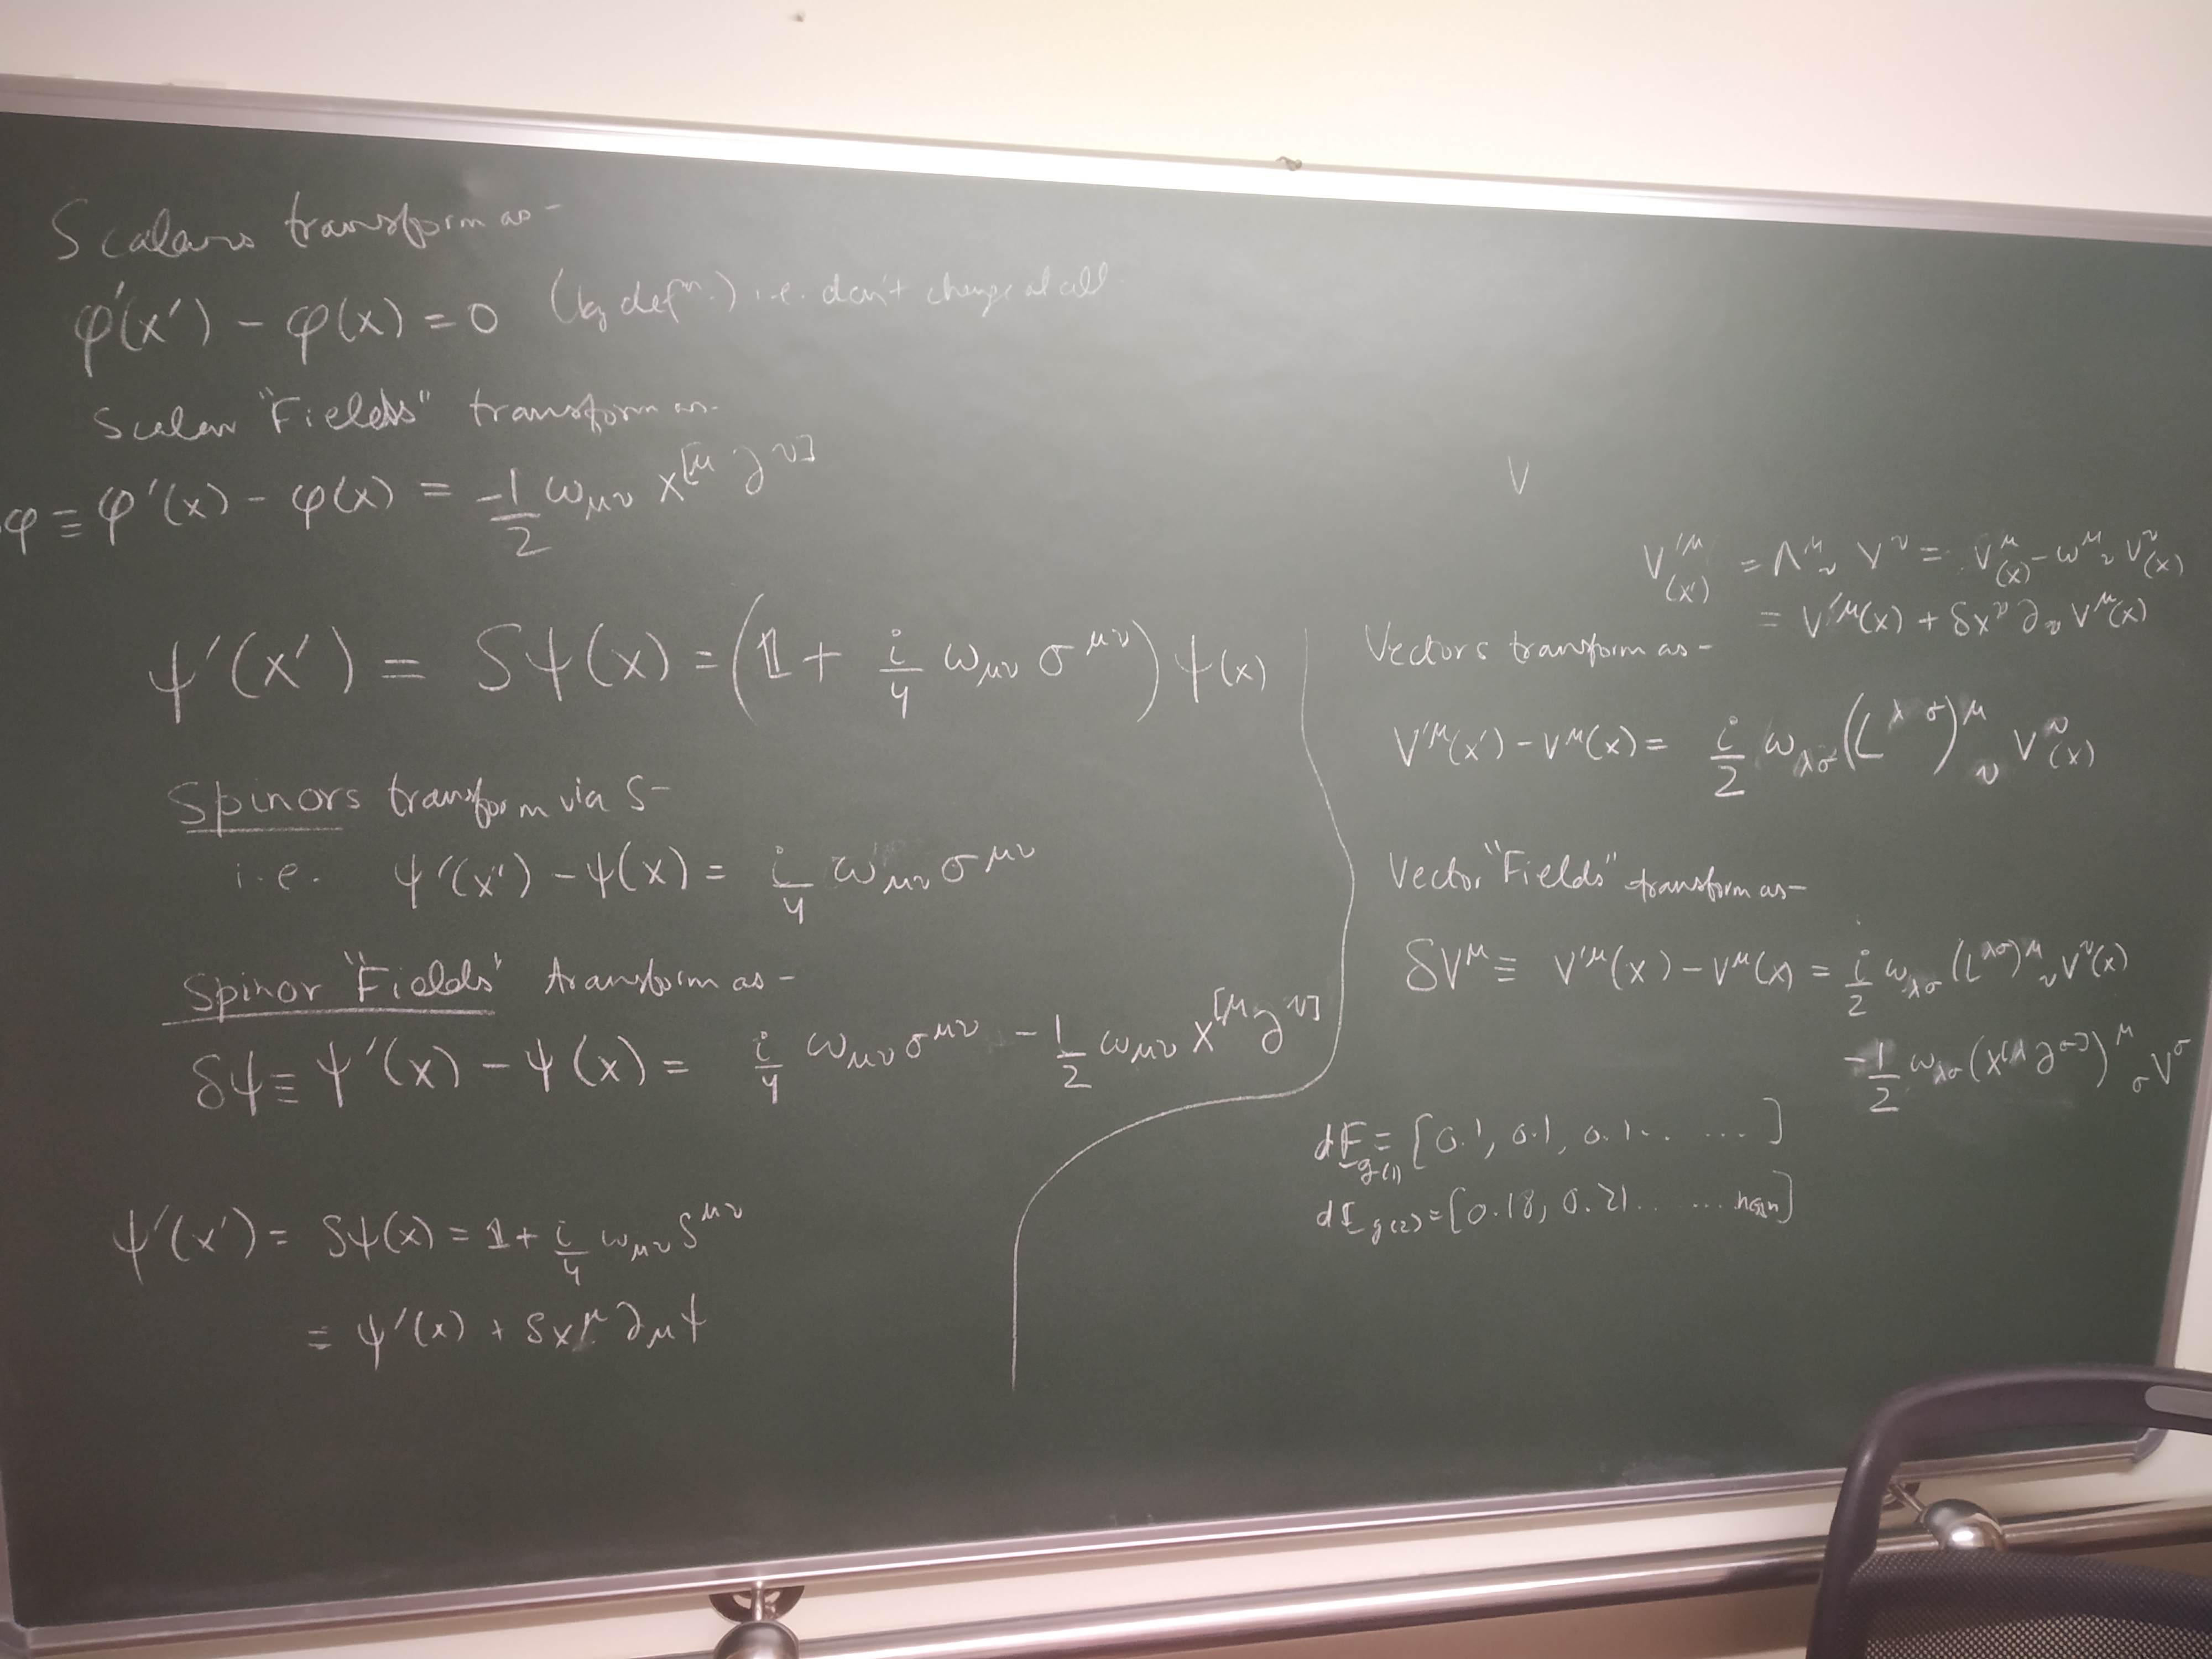 Scalars transform as -
φ'(x') - φ(x) = 0 (by defn.) i.e. don't change at all.
Scalar "Fields" transform as -
φ ≡ φ'(x) - φ(x) = -1/2 ω_μν x^[μ ∂^ν]
ψ'(x') = Sψ(x) = (𝟙 + i/4 ω_μν σ^μν) ψ(x)
Spinors transform via S -
i.e. ψ'(x') - ψ(x) = i/4 ω_μν σ^μν
Spinor "Fields" transform as -
δψ ≡ ψ'(x) - ψ(x) = i/4 ω_μν σ^μν - 1/2 ω_μν x^[μ ∂^ν]
ψ'(x') = Sψ(x) = 𝟙 + i/4 ω_μν S^μν
= ψ'(x) + δx^μ ∂_μ ψ
V
V'^μ(x') = Λ^μ_ν V^ν = V^μ(x) - ω^μ_ν V^ν(x)
= V'^μ(x) + δx^ν ∂_ν V^μ(x)
Vectors transform as -
V'^μ(x') - V^μ(x) = i/2 ω_λσ (L^λσ)^μ_ν V^ν(x)
Vector "Fields" transform as -
δV^μ ≡ V'^μ(x) - V^μ(x) = i/2 ω_λσ (L^λσ)^μ_ν V^ν(x)
-1/2 ω_λσ (x^[λ ∂^σ])^μ_σ V^σ
dE_g(1) = [0.1, 0.1, 0.1.. ....]
dE_g(2) = [0.18, 0.21.. ....]